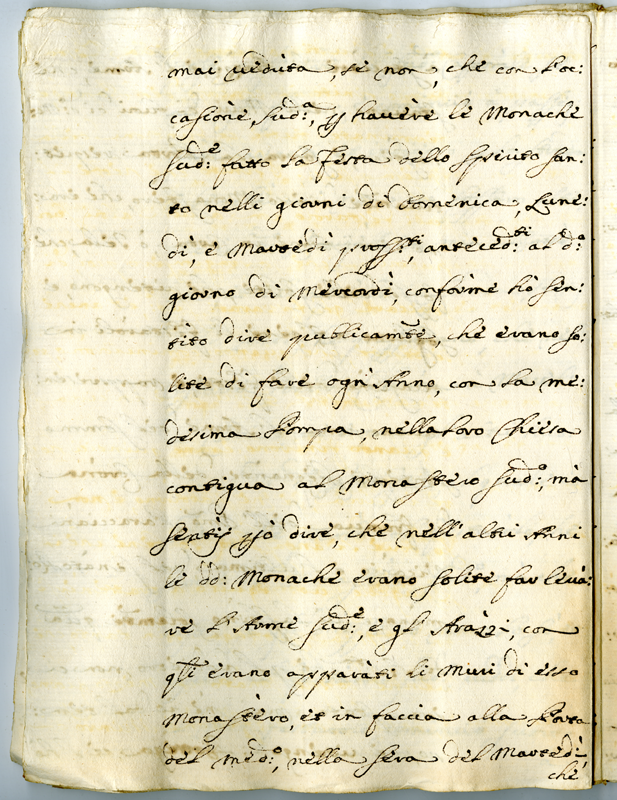 mai veduta, se non, che con l'oc:
casione, sud:ª, p hauere le Monache
sud:e fatto la festa dello spirito san:
to nelli giorni di Domenica, Lune:
dì, e Martedì pross:ti, anteced:ti al d:º
giorno di Mercordì, conforme hò sen:
tito dire publicamte, che erano so:
lite di fare ogni Anno, con la me:
desima Pompa, nella loro Chiesa
contigua al Monastero sud:º, mà
sentij però dire, che nell'altri Anni
le dd: Monache erano solite far leua:
re l'Arme sud:e, e gl'Arazzi, con
qli erano apparati li muri di esso
Monastero, et in faccia alla Porta
del med:º, nella sera del Martedì
che